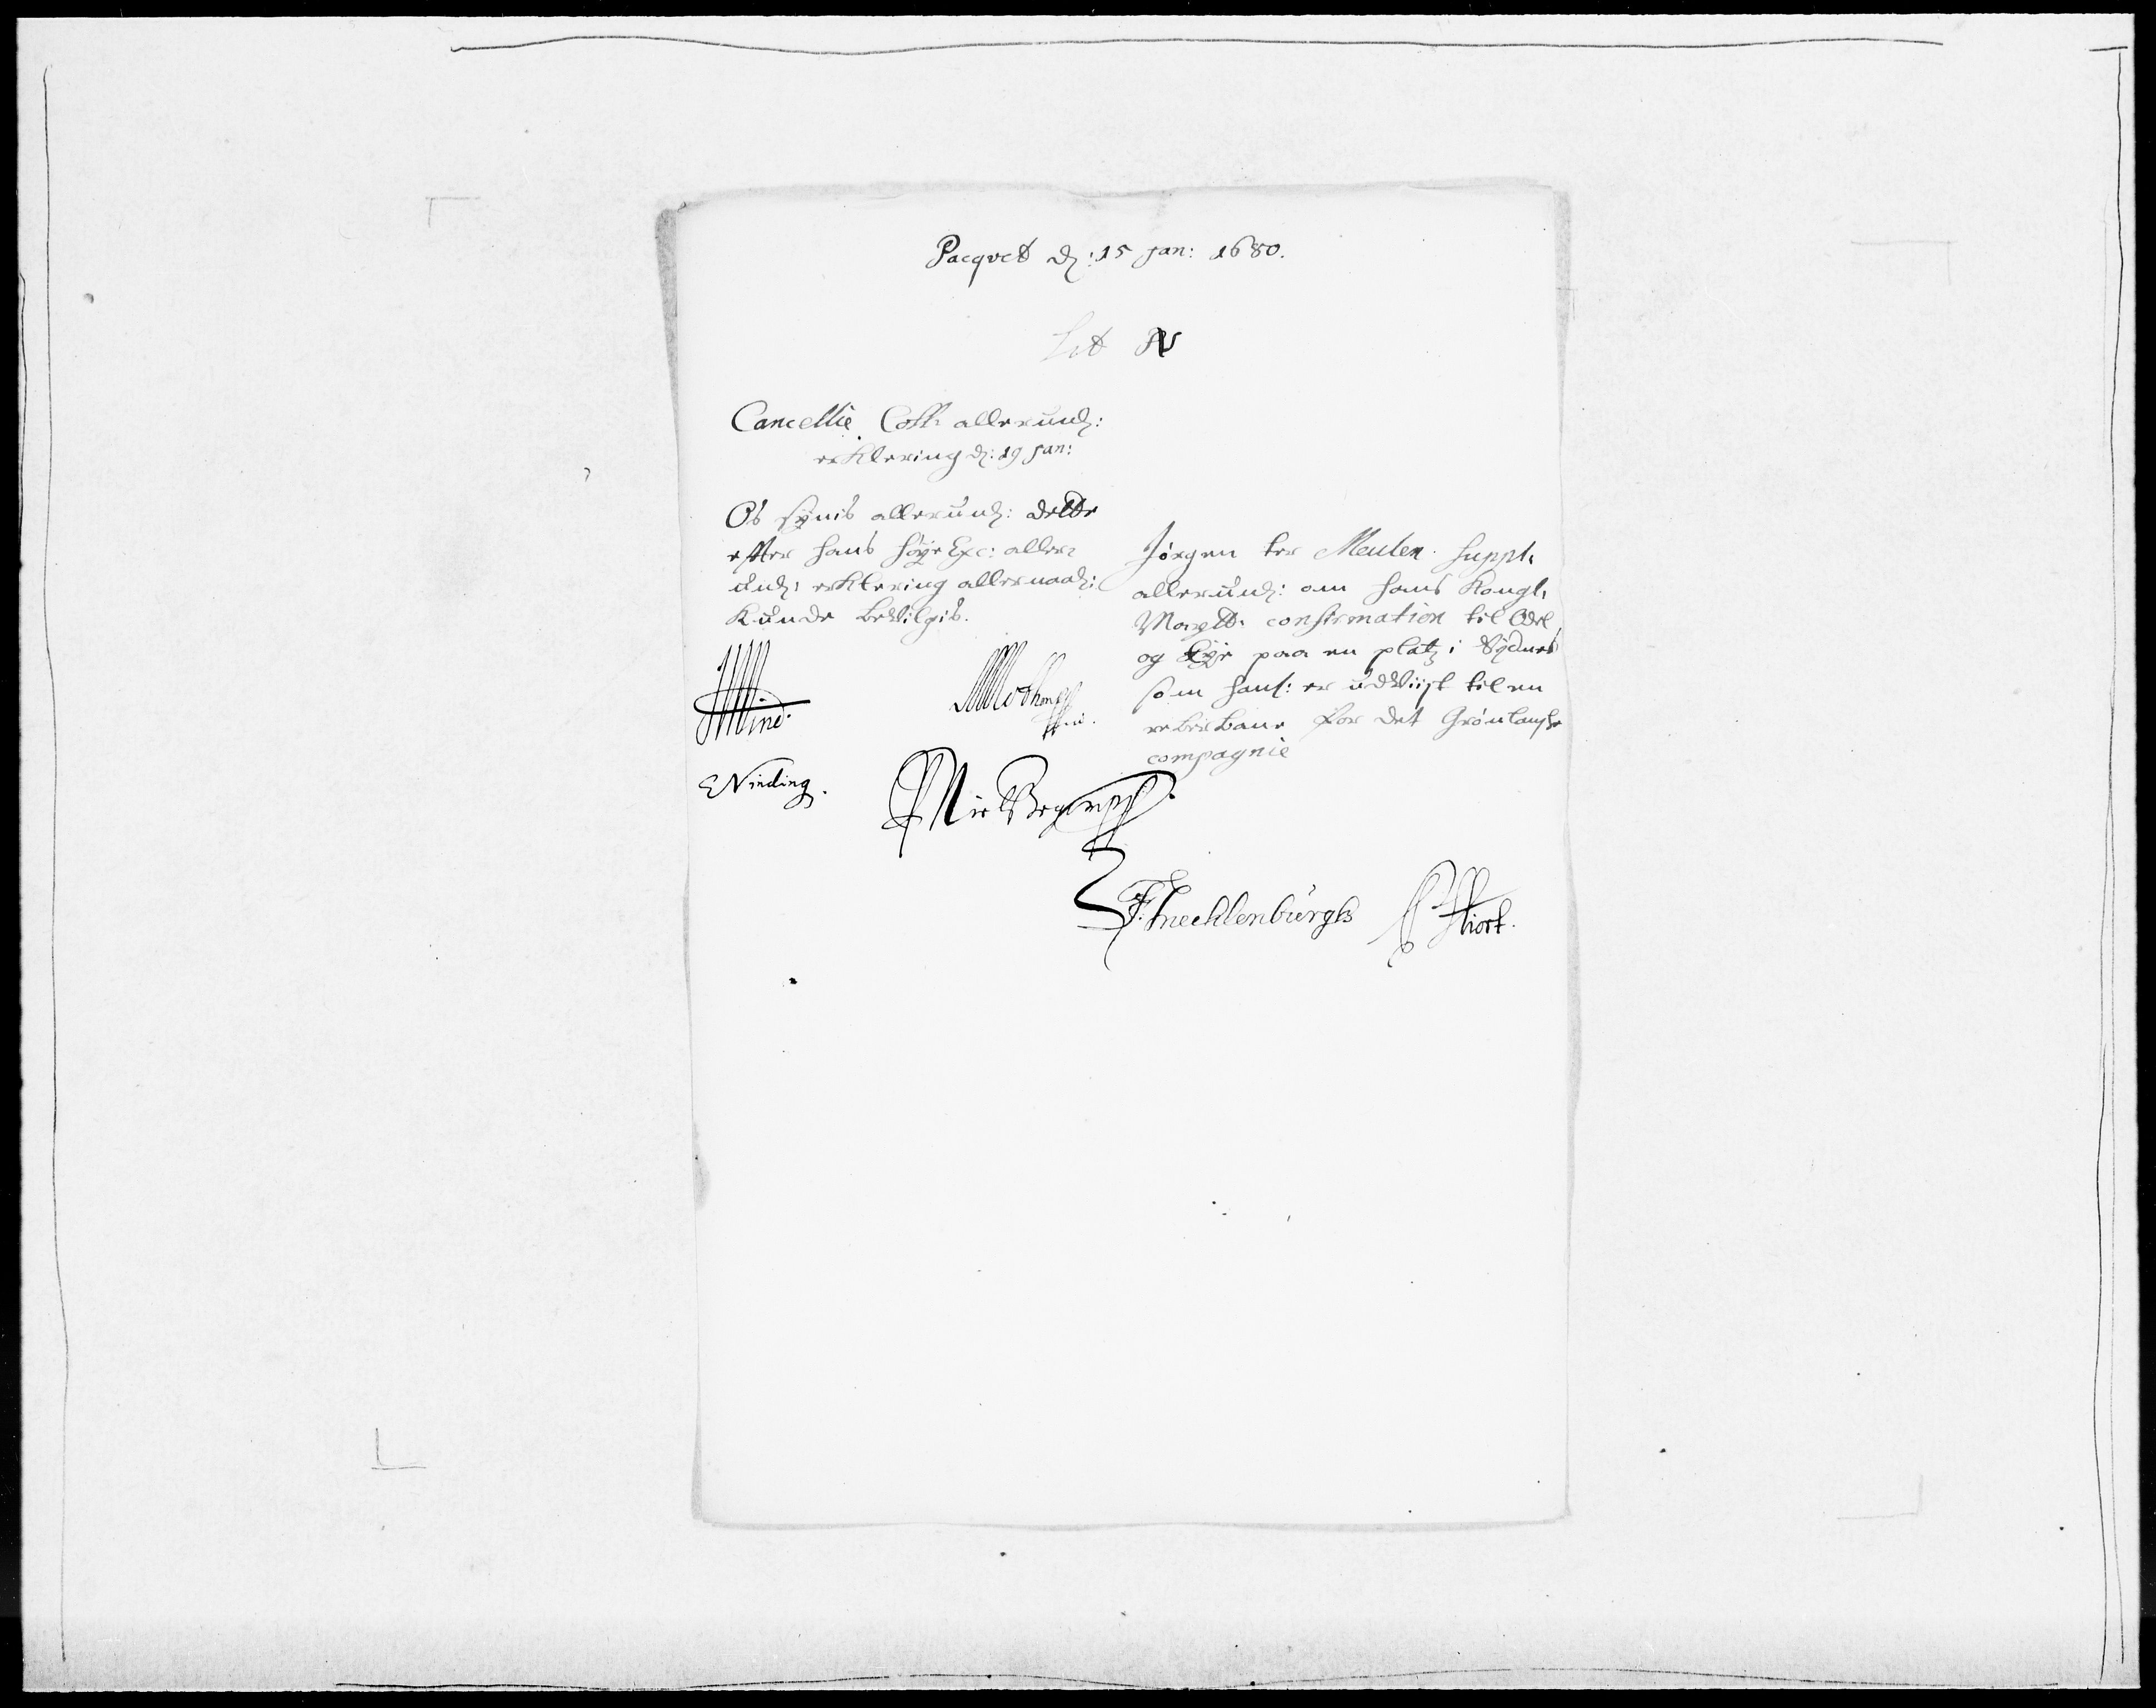 Pacqvet dh: 15 Jan: 1680.
Lit N
Cancellie Coll: allerundh:
erklering dh: 19 Jan:
Os synis allerundh: dette
efter hans høye Exc: aller:
undh: erklering allernaadh:
kunde bevilgis.
Jørgen ter Meulen suppl:
allerundh: om hans Kongl:
Maytt: confirmation til Odel
og Eye paa en platz i Sydnes
som hans: er udviist til en
reberbane for det Grønlanske
compagnie
Wind.
E Vinding.
F: Mechlenburgh
Hiort.